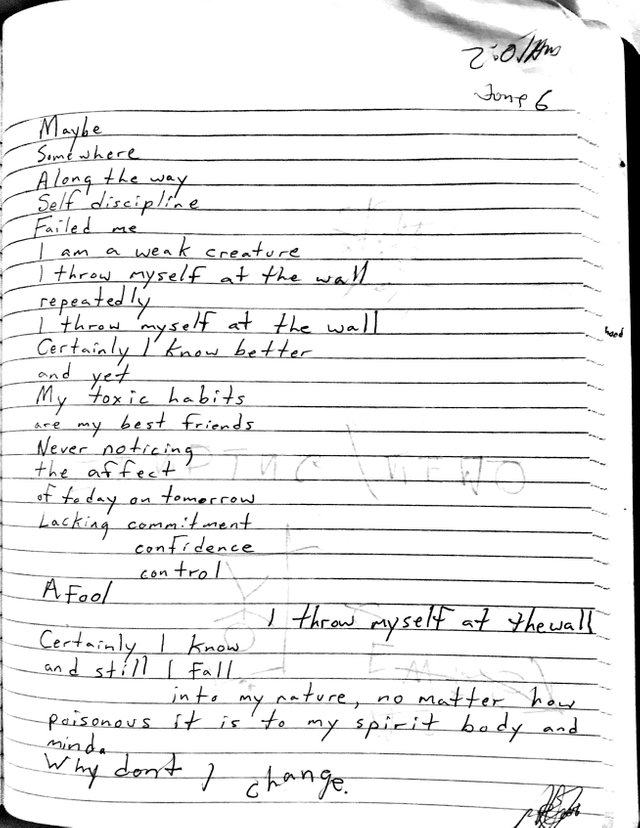 2:01Am
June 6
Maybe
Somewhere
Along the way
Self discipline
Failed me
I am a weak creature
I throw myself at the wall
repeatedly
I throw myself at the wall
Certainly I know better
and yet
My toxic habits
are my best friends
Never noticing
the affect
of today on tomorrow
Lacking commitment
confidence
control
A Fool
I throw myself at the wall
Certainly I know
and still I fall
into my nature, no matter how
poisonous it is to my spirit body and
mind.
Why dont I change.